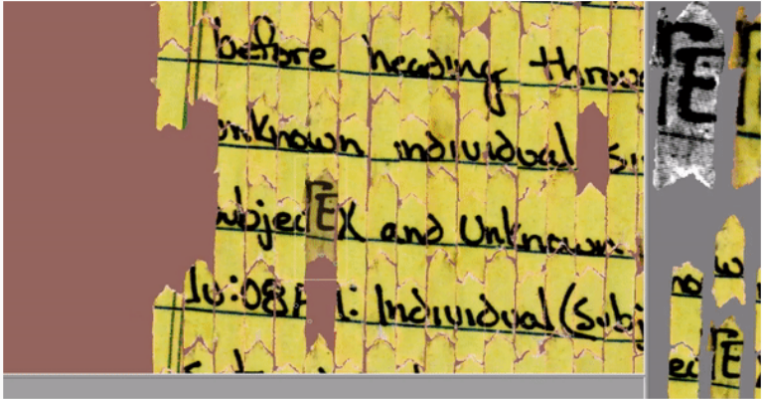 before heading throu
nknown individual si
ubjec TE X and Unknown
10:08P : Individual (Subj